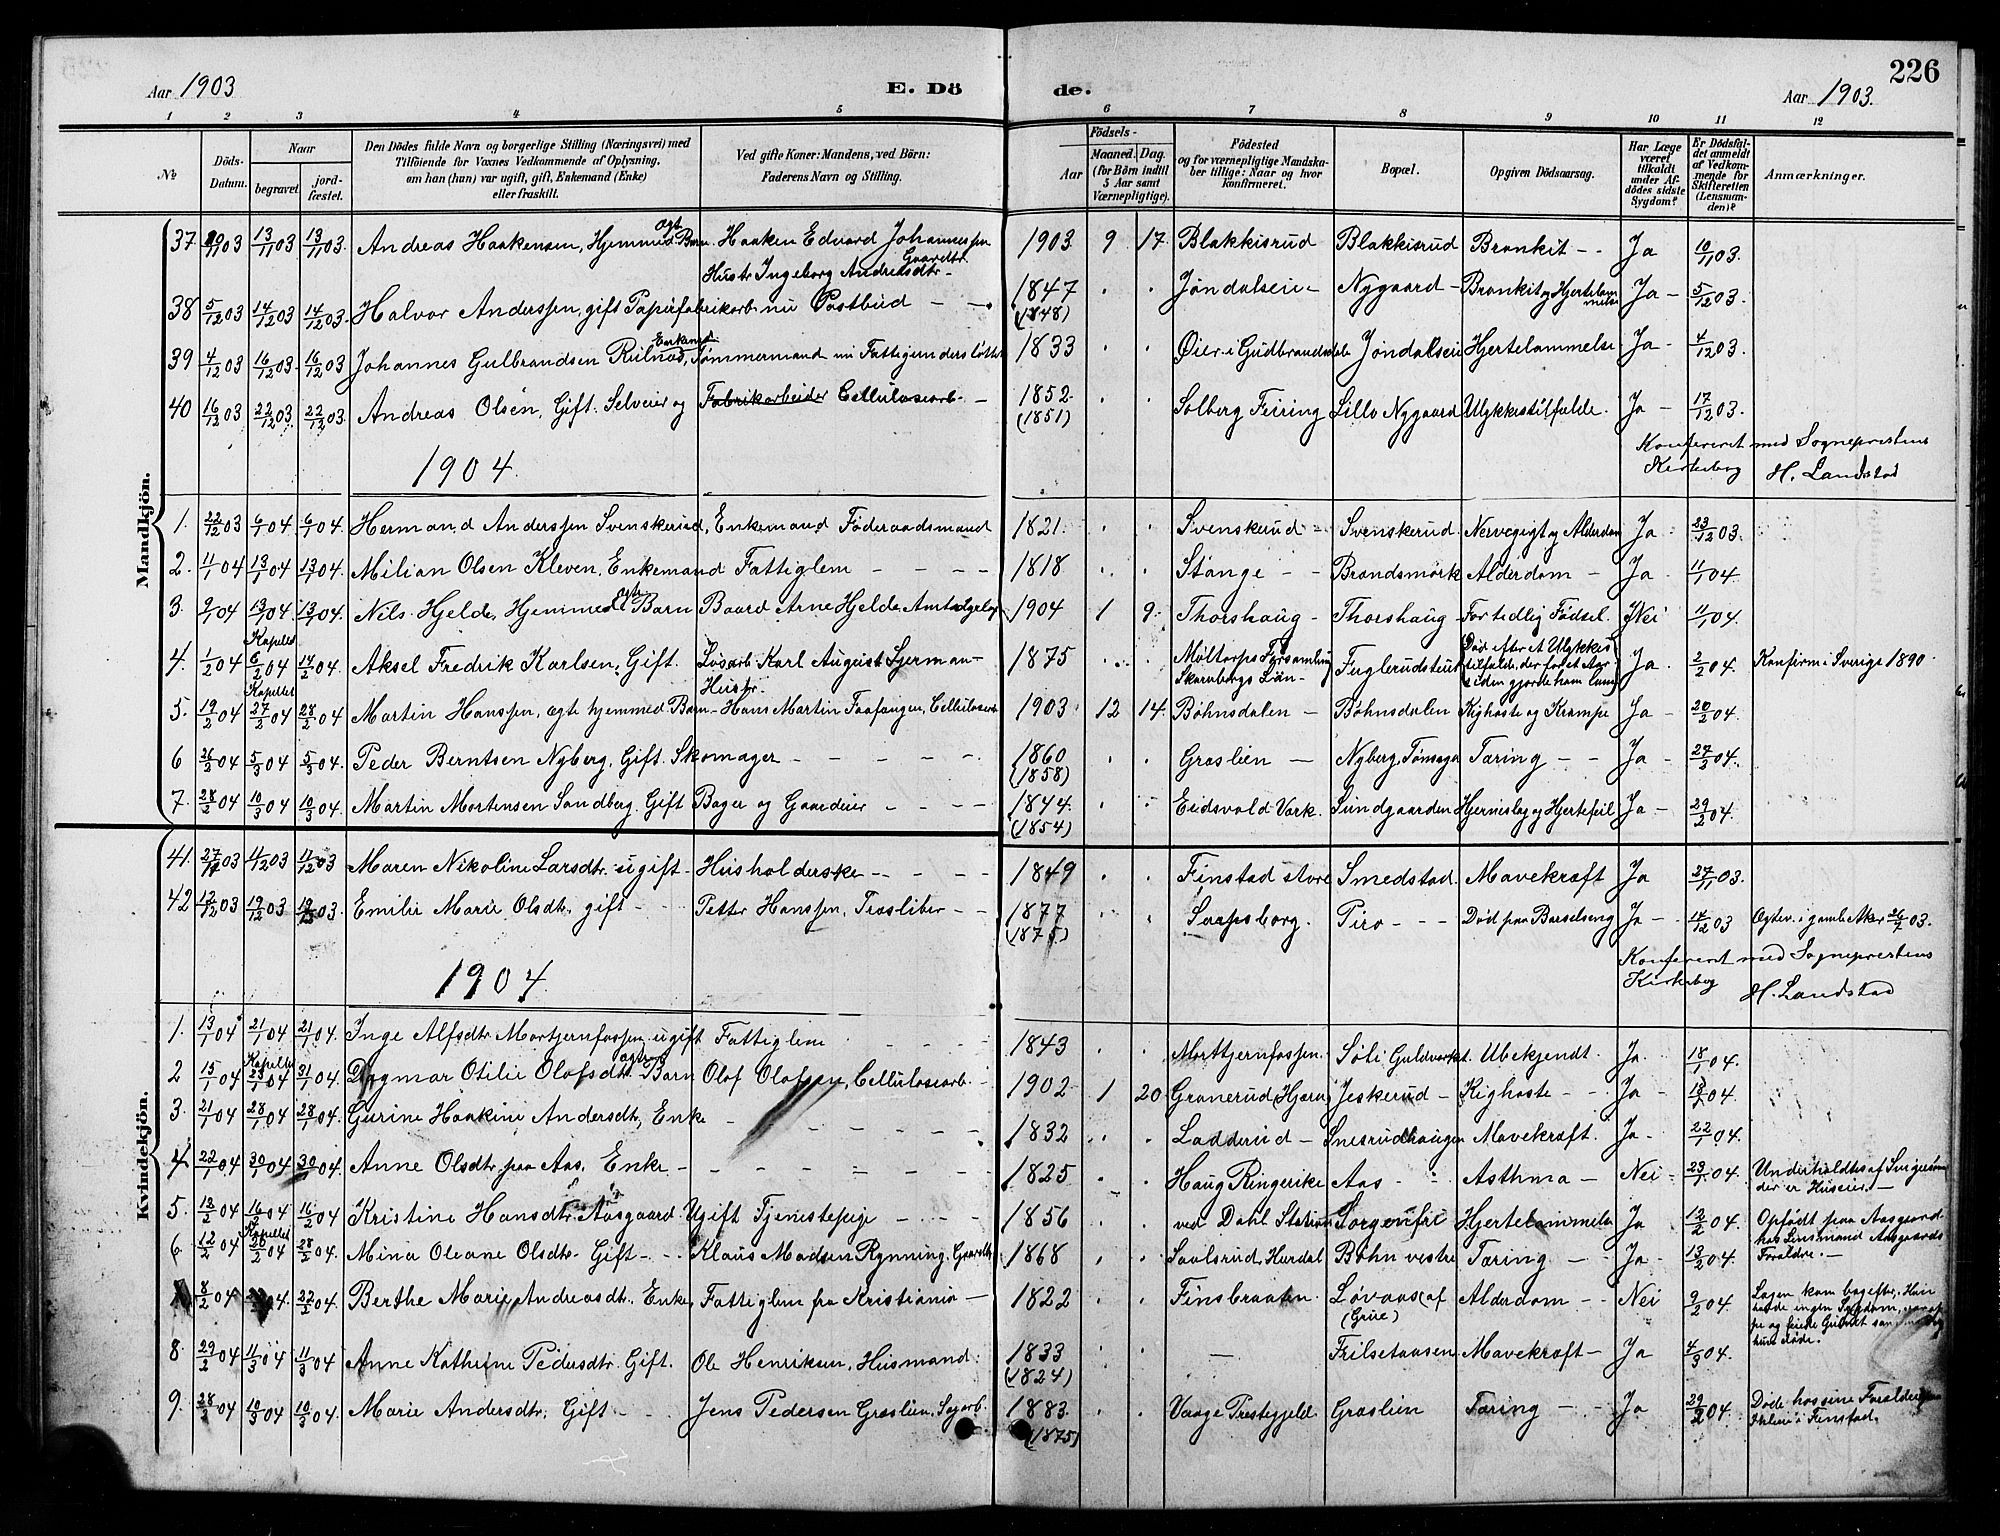 226
Aar 1903
E. Dö
de.
Aar 1903.
1 2 3 4 5 6 7 8 9 10 11 12
№
Döds-Datum.
Naar
begravet
jordfæstet.
Den Dödes fulde Navn og borgerlige Stilling (Næringsvei) med
Tilföiende for Voxnes Vedkommende af Oplysning,
om han (hun) var ugift, gift, Enkemand (Enke)
eller fraskilt.
Ved gifte Koner: Mandens, ved Börn:
Faderens Navn og Stilling.
Födsels-
Aar
Maaned. Dag.
(for Börn indtil
5 Aar samt
Værnepligtige).
Födested
og for værnepligtige Mandskaber tillige: Naar og hvor
konfirmeret.
Bopæl.
Opgiven Dödsaarsag.
Har Læge
været
tilkaldt
under Afdödes sidste
Sygdom?
Er Dödsfaldet anmeldt
af Vedkommende for
Skifteretten
(Lensmanden)?
Anmærkninger.
Mandkjön.
37 13/11 03 13/11 03. Andreas Haakensen, Hjemmed. Ægt. Barn. Haaken Edvard Johannessen Gaardbr. 1903 9 17. Blakkisrud Blakkisrud Bronkit - - Ja 10/11 03.
Hustr. Ingeborg Andreasdtr -
38 5/12 03 14/12 03 14/12 03. Halvor Anderssen, gift Papirfabrikarb. nu Postbud - - 1847 (1848) Jøndalseie - Nygaard - Bronkit og Hjertelammelse Ja - 5/12 03.
39 4/12 03 16/12 03. 16/12 03. Johannes Gulbrandsen Enkemand, Tømmermand nu Fattigunderstøttet 1833 Øier i Gudbrandsdale Jøndalseie Hjertelammelse Ja - 4/12 03.
40 16/12 03 22/12 03. 22/12 03. Andreas Olsen, Gift. Selveier og Fabrikarbeider Cellulosearb. - 1852. (1851) Solberg Feiring Lille Nygaard Ulykkestilfælde. Ja - 17/12 03.
Konfereret med Sogneprestens
Kirkebog H. Landstad
1904.
1. 22/12 03 6/1 04 6/1 04. Hermand Anderssen Svenskerud, Enkemand Føderaadsmand 1821. Svenskerud - Svenskerud Nervegigt og Alderdom Ja - 23/12 03.
2. 11/1 04 13/1 04 13/1 04. Milian Olsen Kleven, Enkemand Fattiglem - - - - 1818 Stange - - Brandsmørk Alderdom - Ja - 11/1 04.
3. 9/1 04 13/1 04 13/1 04. Nils Hjelde, Hjemmed. ægte Barn Baard Arne Hjelde, 1904 1 9. Thorshaug - Thorshaug - For tidlig Fødsel. Nei 11/1 04.
4. 1/2 04 Kapellet 6/2 04 14/2 04. Aksel Fredrik Karlsen, Gift. Løsarb. Karl August 1875 Møltorps Forsamling Skaraborgs Län - Død efter et Ulykkestilfælde, der for et Aar siden gjorde ham lam Ja - 2/2 04. Konfirm i Sverige 1890
Hustr.
5. 19/2 04 Kapellet 27/2 04 28/2 04. Martin Hanssen, ægte hjemmed Barn - Hans Martin Faafangen, Cellulosearb 1903 12 14. Bøhnsdalen - Bøhnsdalen Kighoste og Krampe Ja - 20/2 04.
6 26/2 04 5/3 04 5/3 04. Peder Berntsen Nyberg, Gift. Skomager - - - - 1860 (1858) Græslien - Nyberg Tønsaga Tæring - - Ja - 27/2 04.
7. 28/2 04 10/3 04 10/3 04. Martin Mortensen Sandberg. Gift Bager og Gaardeier - - - 1844. (1854) Eidsvold Værk. Sundgaarden Hjerneslag og Hjertefeil Ja - 29/2 04.
Kvindekjön.
41. 27/11 03 4/12 03 Maren Nikoline Larsdtr. ugift - Husholderske - - - - 1849 Finstad store Smedstad. Mavekræft Ja 27/11 03.
42 12/12 03 19/12 03 19/12 03. Emilie Marie Olsdtr. gift - - Petter Hanssen, Træsliber - - 1877 (1875) Sarpsborg. Piro - - - Død paa Barselseng Ja - 14/12 03 Ægtev. i gamle Aker 26/7 03.
Konfereret med Sogneprestens
Kirkebog H. Landstad
1904.
1. 13/1 04 21/1 04 21/1 04 Inge Alfsdtr. Mortjernfossen ugift Fattiglem - - - - 1843 Morttjernfossen. Søli Guldverket. Ubekjendt. Ja 18/1 04.
2 15/1 04 Kapellet 23/1 04 31/1 04. Dagmar Otilie Olafsdtr. ægte Barn Olof Olofsson, Cellulosearb. - 1902 1 20 Granerud (Hjæra) Jeskerud - Kighoste - - - Ja - 18/1 04.
3. 21/1 04 28/1 04 28/1 04. Gurine Haakine Andersdtr, Enke - - - - 1832 Ladderud - Snesrudhaugen Mavekræft. Ja - 22/1 04.
4 22/1 04 30/1 04 30/1 04. Anne Olsdtr. paa Aas, Enke - - - - - 1825 Haug Ringerike Aas - - Asthma - Nei - 23/1 04. Underholdtes af Svigersøn der er Huseier. -
5. 12/2 04 16/2 04 16/2 04 Kristine Hansdtr. Aasgaard Ugift Tjenestepige - - - 1856 ved Dahl Station Sorgenfri Hjertelammelse Ja 12/2 04. Opfødt paa Aasgaard hos Lensmand Aasgaards Forældre. -
6. 12/2 04 Kapellet 20/2 04 28/2 04. Mina Oleane Olsdtr. Gift - - Klaus Madsen Rynning, Gaardbr 1868 Saalsrud, Hurdal Bøhn vestre Tæring - Ja - 13/2 04.
8/2 04 22/2 04. Berthe Marie Andreasdtr. Enke, Fattiglem fra Kristiania - 1822 Finsbraaten. Løvaas (af (Grue) Alderdom - - Nei 9/2 04. Lægen kom bagefter. Hun havde ingen Sygdom, var oppe og feiede Gulvet samme Dag hun døde.
8. 29/2 04 11/3 04 11/3 04 Anne Kathrine Pedersdtr. Gift. Ole Henriksen, Husmand. 1833 (1824) - Frilsetaasen Mavekræft - Ja 4/3 04.
9. 28/2 04 10/3 04 10/3 04. Marie Andersdtr, Gift - - Jens Pedersen Græslien, Sagarb. 1883. (1875) Vaage Prestegjeld Græslien Tæring - - Ja 29/2 04. Døde hos sine Forældre i Finstad.